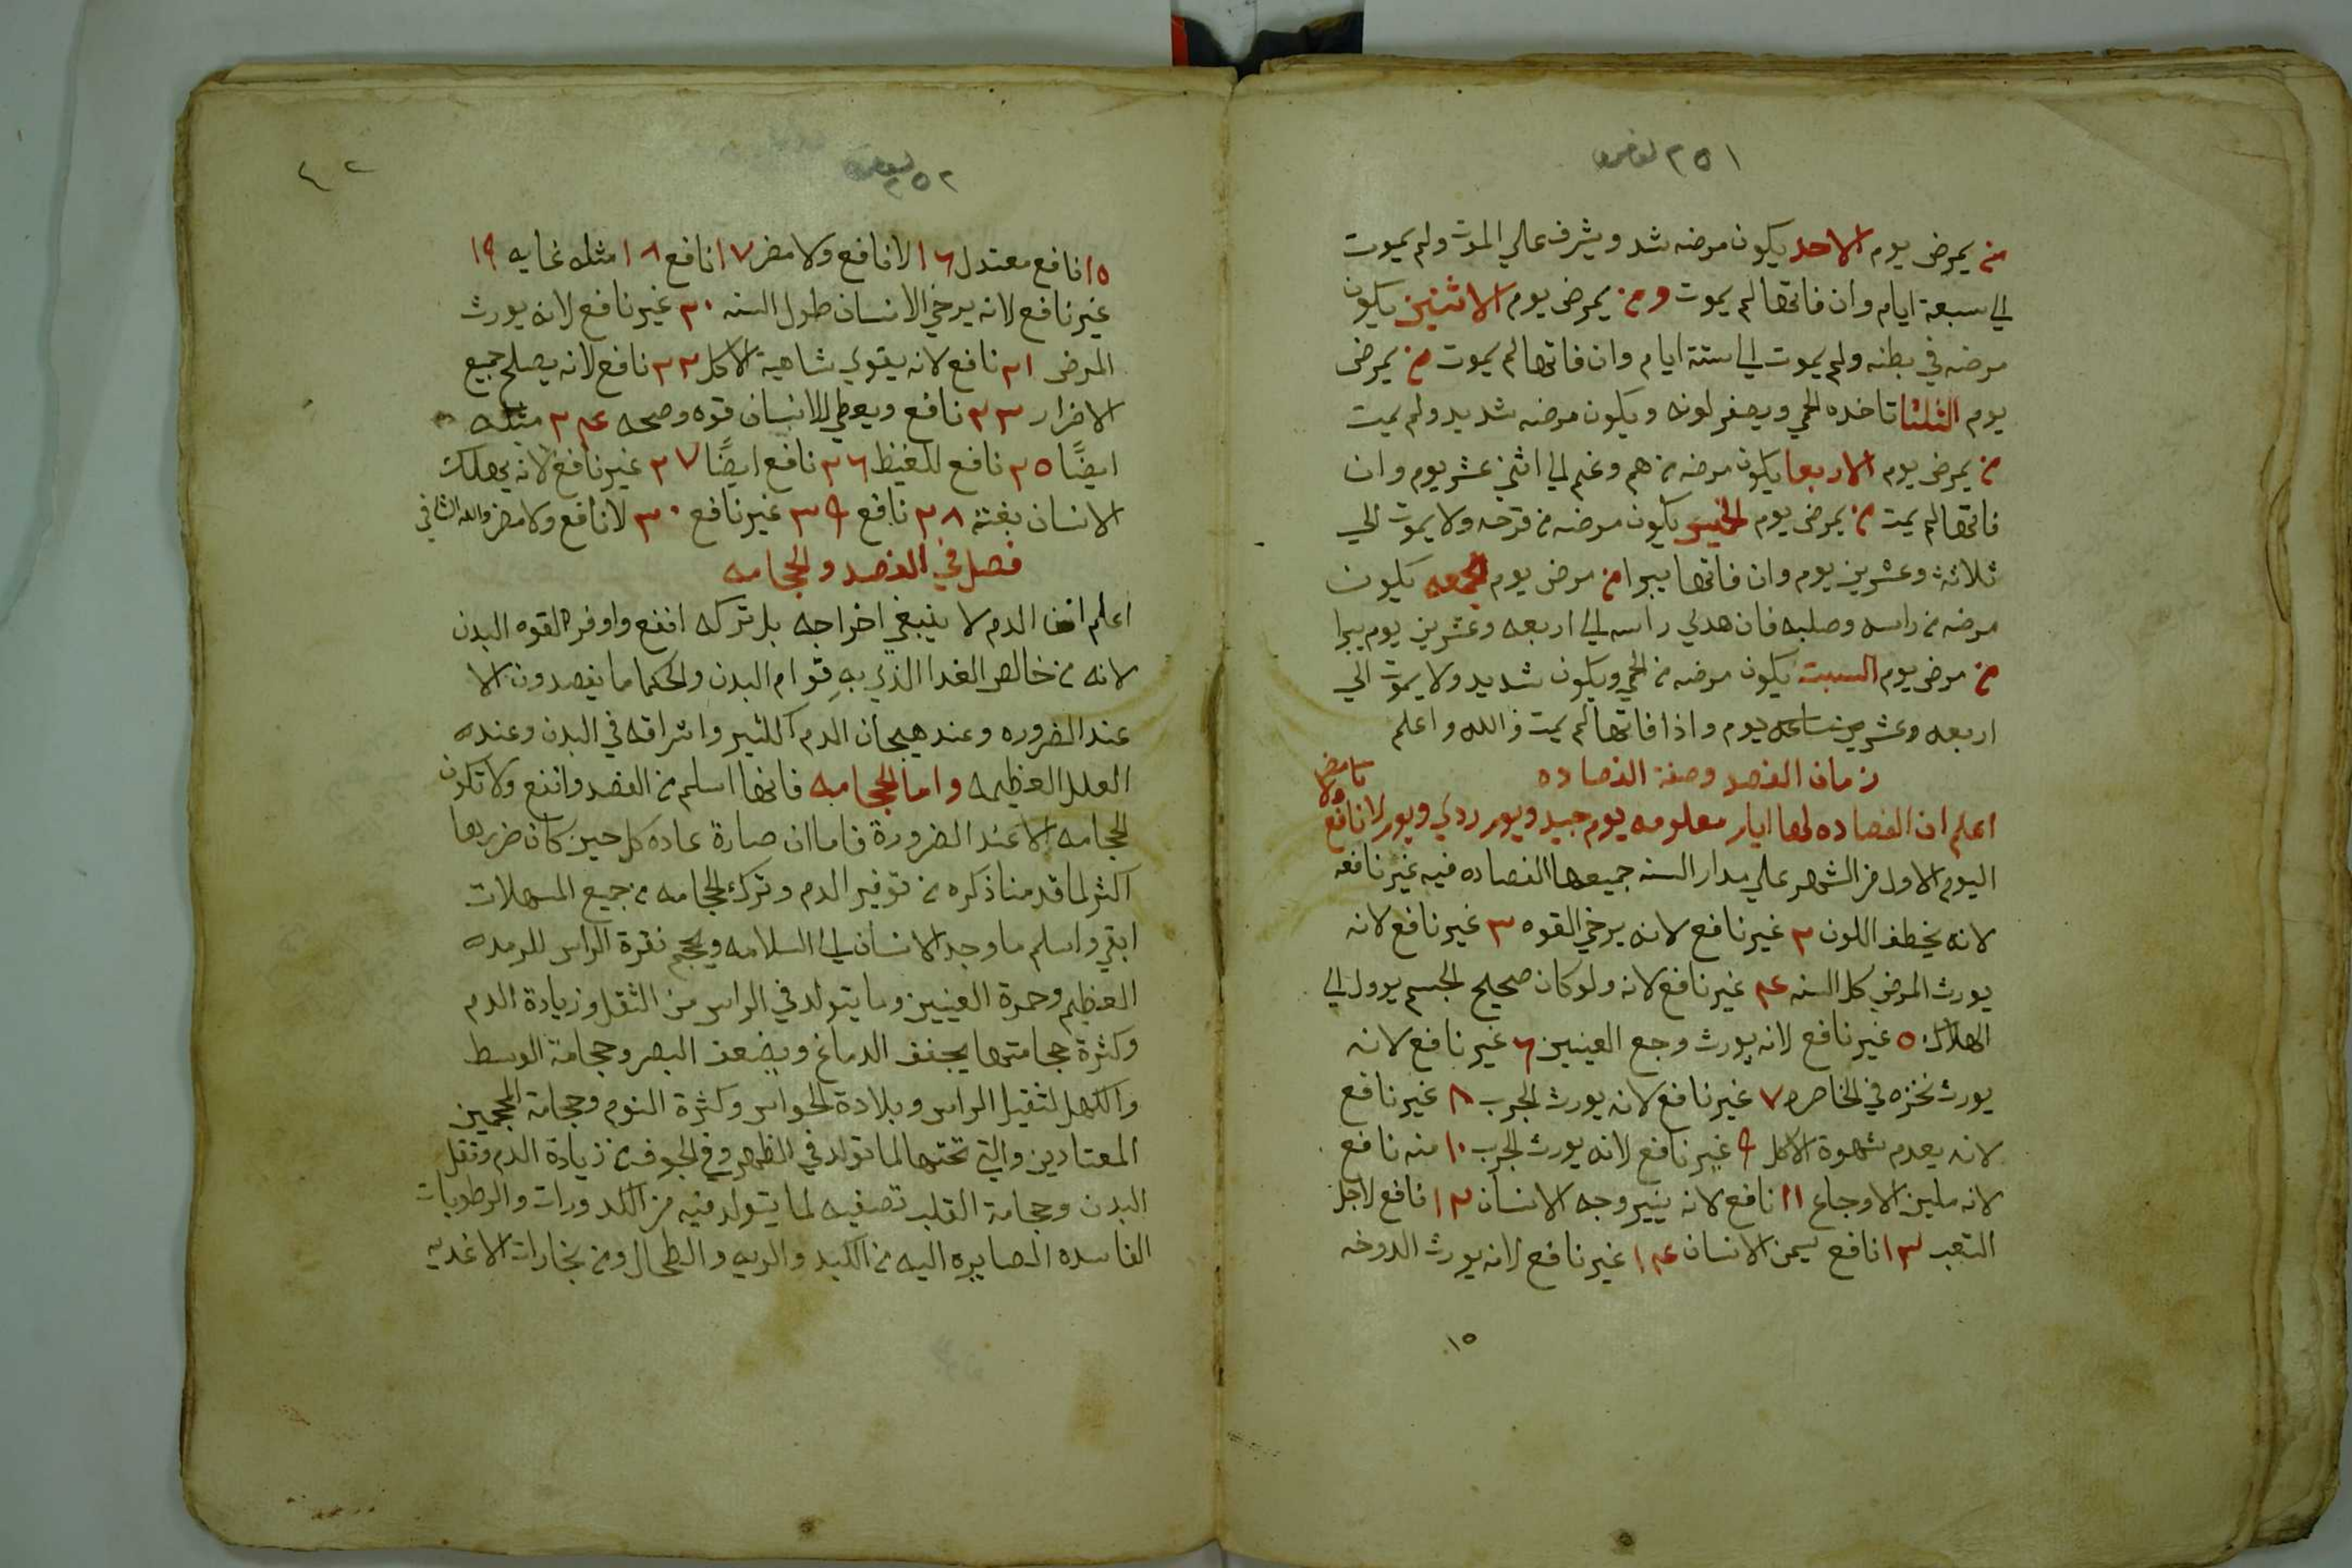 ٢٥١
من يمرض يوم الاحد يكون مرضه شد ويشرف علي الموت ولم يموت
الي سبعة ايام وان فاتها لم يموت ومن يمرض يوم الاثنين يكون
مرضه في بطنه ولم يموت الي ستة ايام وان فاتها لم يموت من يمرض
يوم الثلثا تاخده الحمي ويصفر لونه ويكون مرضه شديد ولم يميت
من يمرض يوم الاربعا يكون مرضه من هم وغم الي اثني عشر يوم وان
فاتها لم يمت من يمرض يوم الخميس يكون مرضه من قرحه ولا يموت الي
ثلاثة وعشرين يوم وان فاتها يبرا من مرض يوم الجمعه يكون
مرضه من راسه وصلبه فان هدي راسه الي اربعه وعشرين يوم يبرا
من مرض يوم السبت يكون مرضه من الحمي ويكون شديد ولا يموت الي
اربعه وعشرين يوم واذا فاتها لم يمت والله واعلم
زمان الفصد وصفة الفصاده
اعلم ان الفصاده لها ايام معلومه يوم جيد ويوم ردي ويوم لا نافع
ولا مضر
اليوم الاول من الشهر علي مدار السنه جميعها الفصاده فيه غير نافعه
لانه يخطف اللون ٢ غير نافع لانه يرخي القوه ٣ غير نافع لانه
يورث المرض كل السنه ٤ غير نافع لانه ولو كان صحيح الجسم يوول الي
الهلاك ٥ غير نافع لانه يورث وجع العينين ٦ غير نافع لانه
يورث نخزه في الخاصره ٧ غير نافع لانه يورث الجرب ٨ غير نافع
لانه يعدم شهوة الاكل ٩ غير نافع لانه يورث الجرب ١٠ منه نافع
لانه ملين الاوجاع ١١ نافع لانه ينير وجه الانسان ١٢ نافع لاجل
التعب ١٣ نافع يسمن الانسان ١٤ غير نافع لانه يورث الدوخه
١٥
٢٥٢
١٥ نافع معتدل ١٦ لا نافع ولا مضر ١٧ نافع ١٨ مثله غايه ١٩
غير نافع لانه يرخي الانسان طول السنه ٢٠ غير نافع لانه يورث
المرض ٢١ نافع لانه يقوي شاهية الاكل ٢٢ نافع لانه يصلح جميع
الاضرار ٢٣ نافع ويعطي للانسان قوه وصحه ٢٤ مثله
ايضًا ٢٥ نافع للغيظ ٢٦ نافع ايضًا ٢٧ غير نافع لانه يهلك
الانسان بغتة ٢٨ نافع ٢٩ غير نافع ٣٠ لا نافع ولا مضر والله الشافي
فصل في الفصد والحجامه
اعلم ان الدم لا ينبغي اخراجه بل تركه انفع واوفر القوه البدن
لانه من خالص الغدا الذي بهِ قوام البدن والحكما ما يفصدون الا
عند الضروره وعند هيجان الدم الكثير واتراقه في البدن وعنده
العلل العظيمه واما الحجامه فانها اسلم من الفصد وانفع ولا تكون
الحجامه الا عند الضرورة فاما ان صارة عاده كل حين كان ضررها
اكثر لما قدمنا ذكره من توفير الدم وترك الحجامه من جميع المسهلات
ابقي واسلم ما وجد الانسان الي السلامه ويحجم نقرة الراس للرمده
العظيم وحمرة العينين وما يتولد في الراس من الثقل وزيادة الدم
وكثرة حجامتها يجفف الدماغ ويضعف البصر وحجامة الوسط
والكهل لثقيل الراس وبلادة الحواس وكثرة النوم وحجامة المحجمين
المعتادين والتي تحتها لما تولد في الظهر وفي الجوف من زيادة الدم وثقل
البدن وحجامة القلب تصفيه لما يتولد فيه من الكدورات والرطوبات
الفاسده الصايره اليه من الكبد والريه والطحال ومن بخارات الاغديه